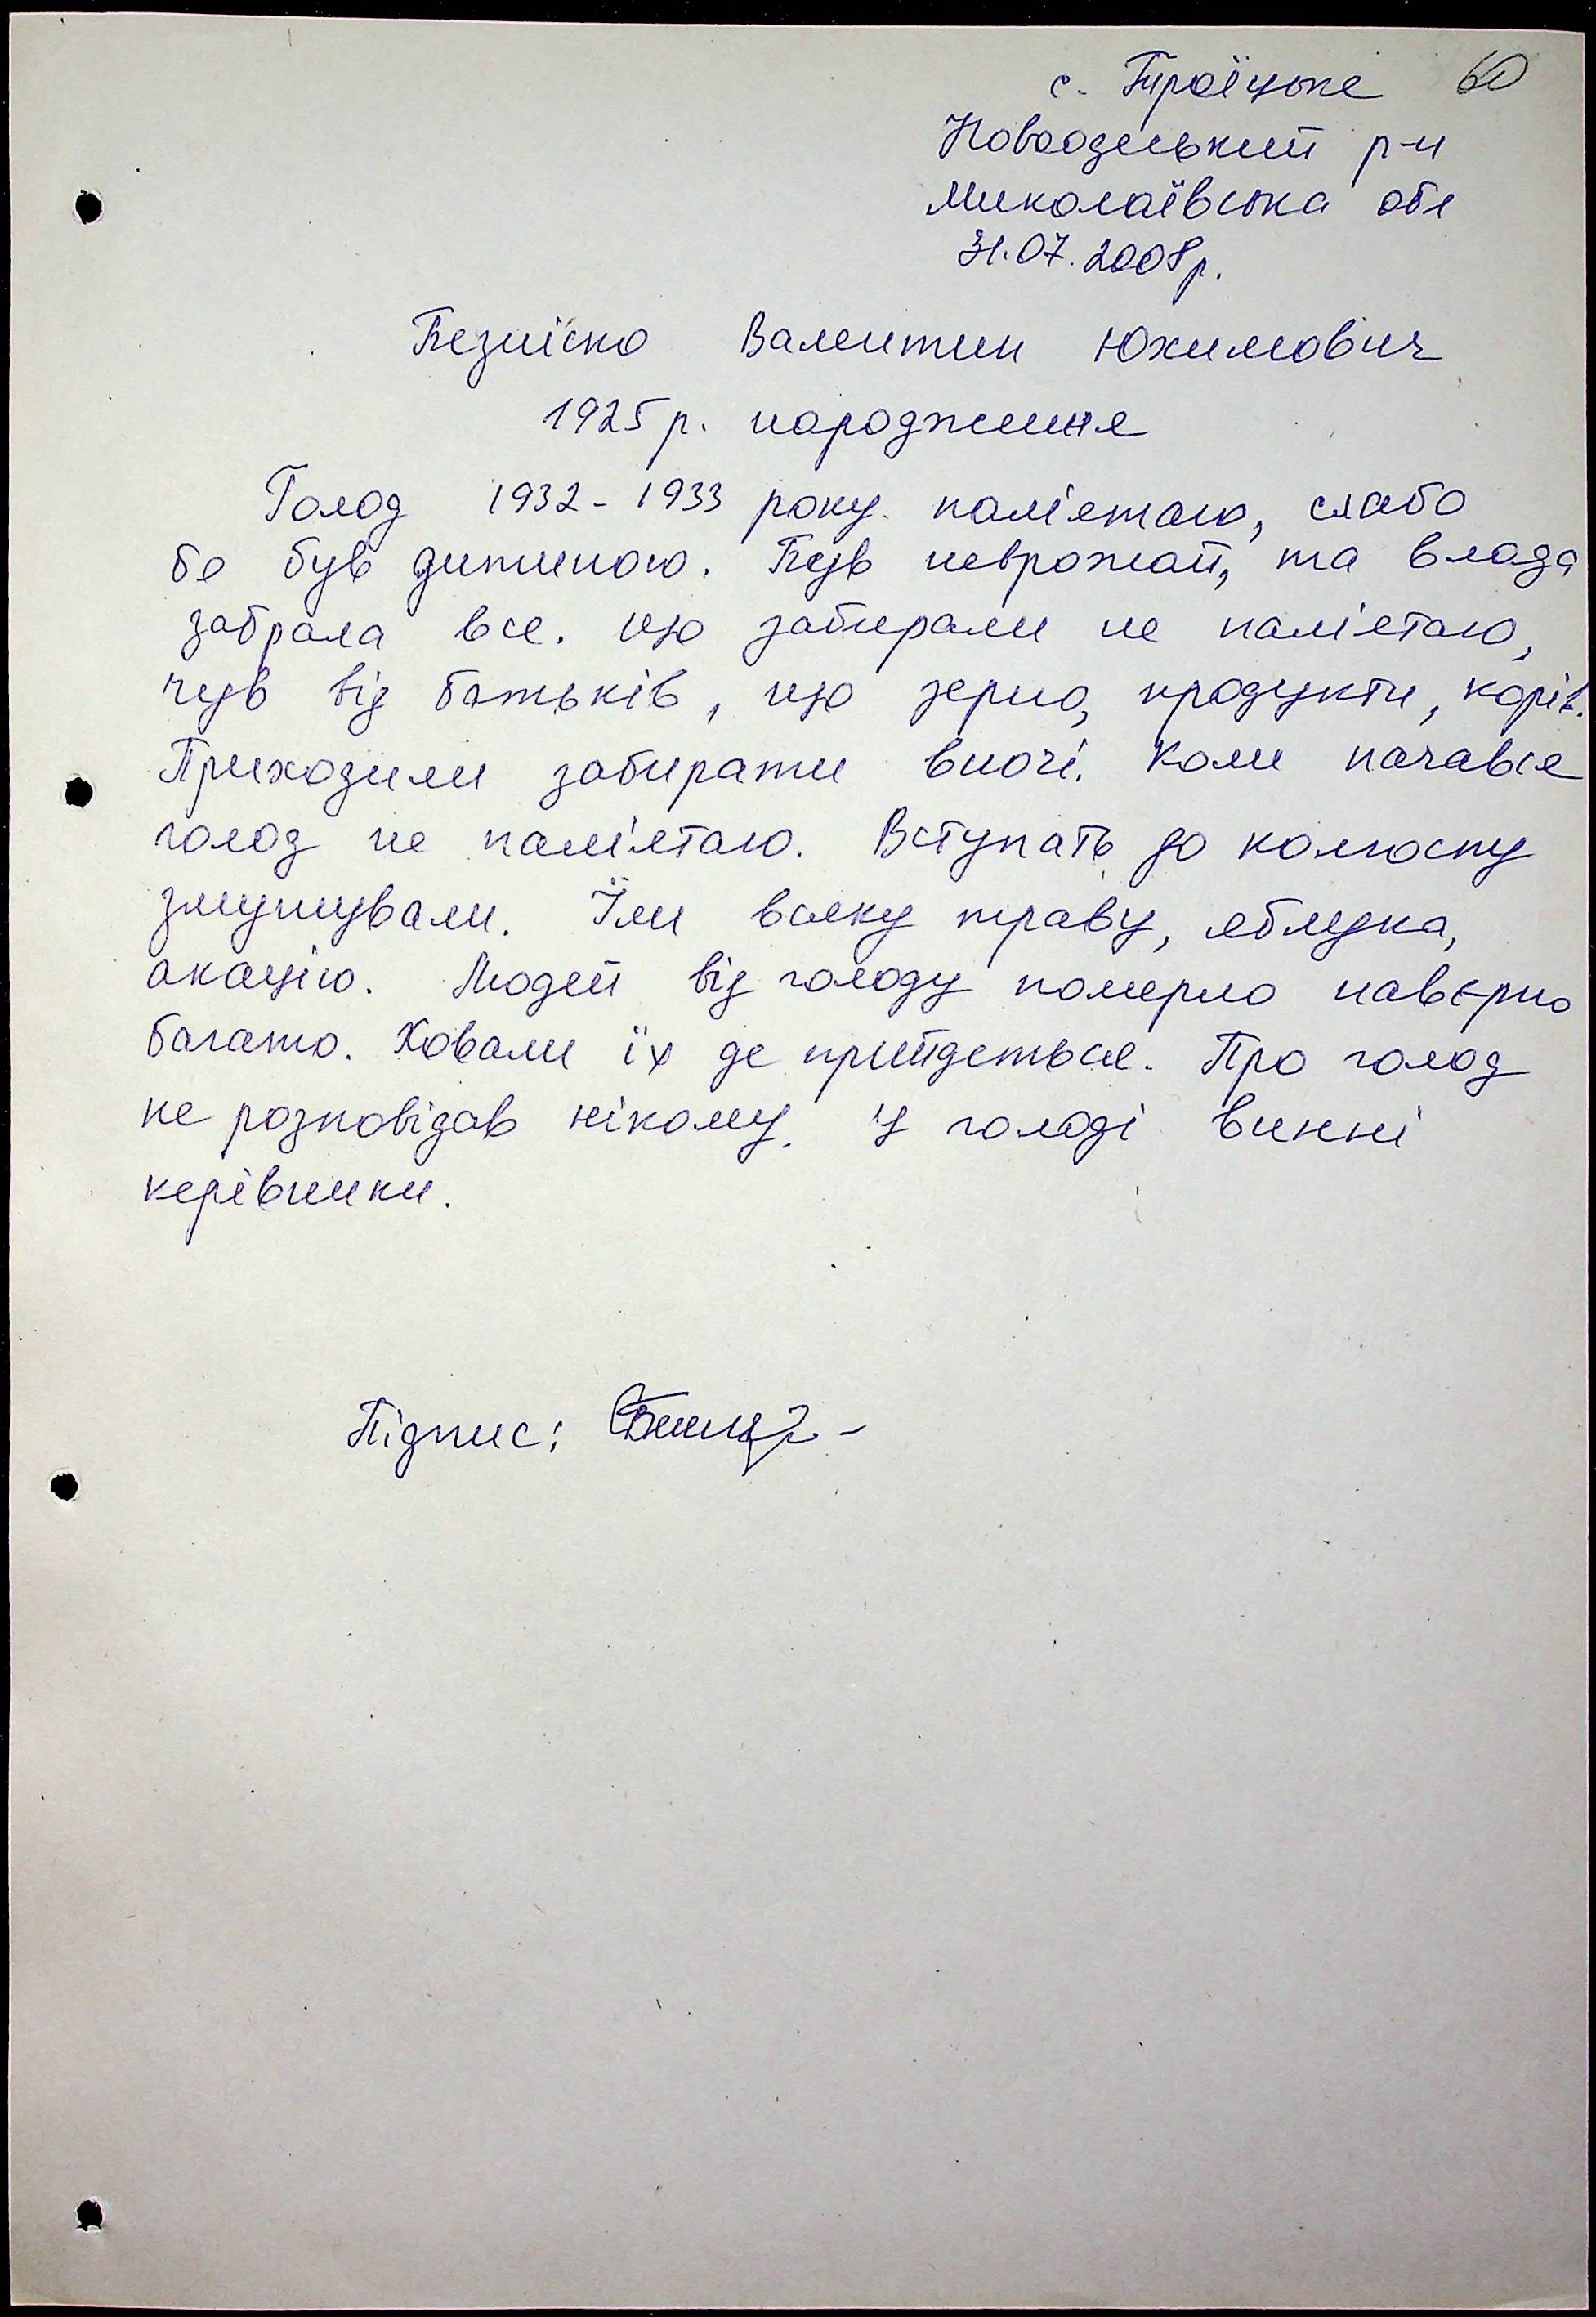 с. Троїцьке 60
Новоодеський р-н
Миколаївська обл
31.07.2008р.
Безпіско Валентин Юхимович
1925 р. народження
Голод 1932-1933 року пам'ятаю, слабо
бо був дитиною. Був неврожай, та влада
забрала все. Що забирали не пам'ятаю,
чув від батьків, що зерно, продукти, корів.
Приходили забирати вночі. Коли почався
голод не пам'ятаю. Вступать до колхоспу
змушували. Їли всяку траву, яблука,
акацію. Людей від голоду померло навєрно
багато. Ховали їх де прийдеться. Про голод
не розповідав нікому. У голоді винні
керівники.
Підпис: